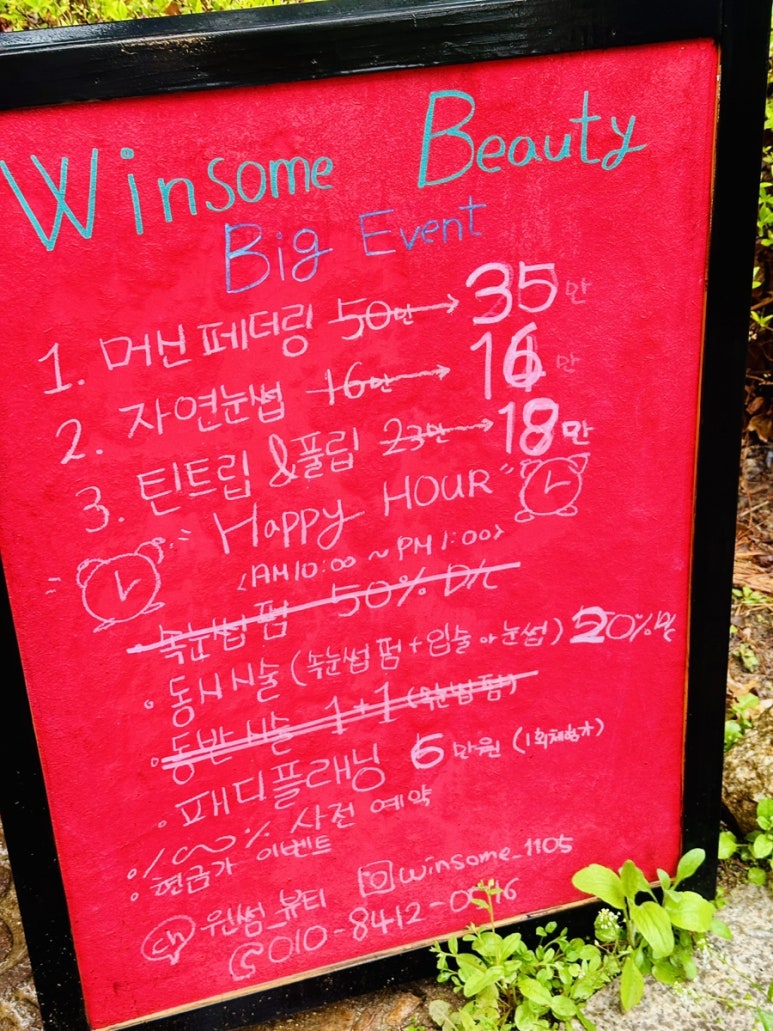 Winsome Beauty
Big Event
1. 머신페더링 50만→35만
2. 자연눈썹 16만→14만
3. 틴트립&풀립 23만→18만
"Happy HOUR"
<AM10:00~PM1:00>
속눈썹 펌 50% D/C
• 동시시술(속눈썹 펌+입술 or 눈썹) 20%
• 동반시술 1+1 (속눈썹 펌)
• 패디플래닝 6만원 (1회체험가)
100% 사전 예약
현금가 이벤트
ch 원썸_뷰티 winsome_1105
010-8412-